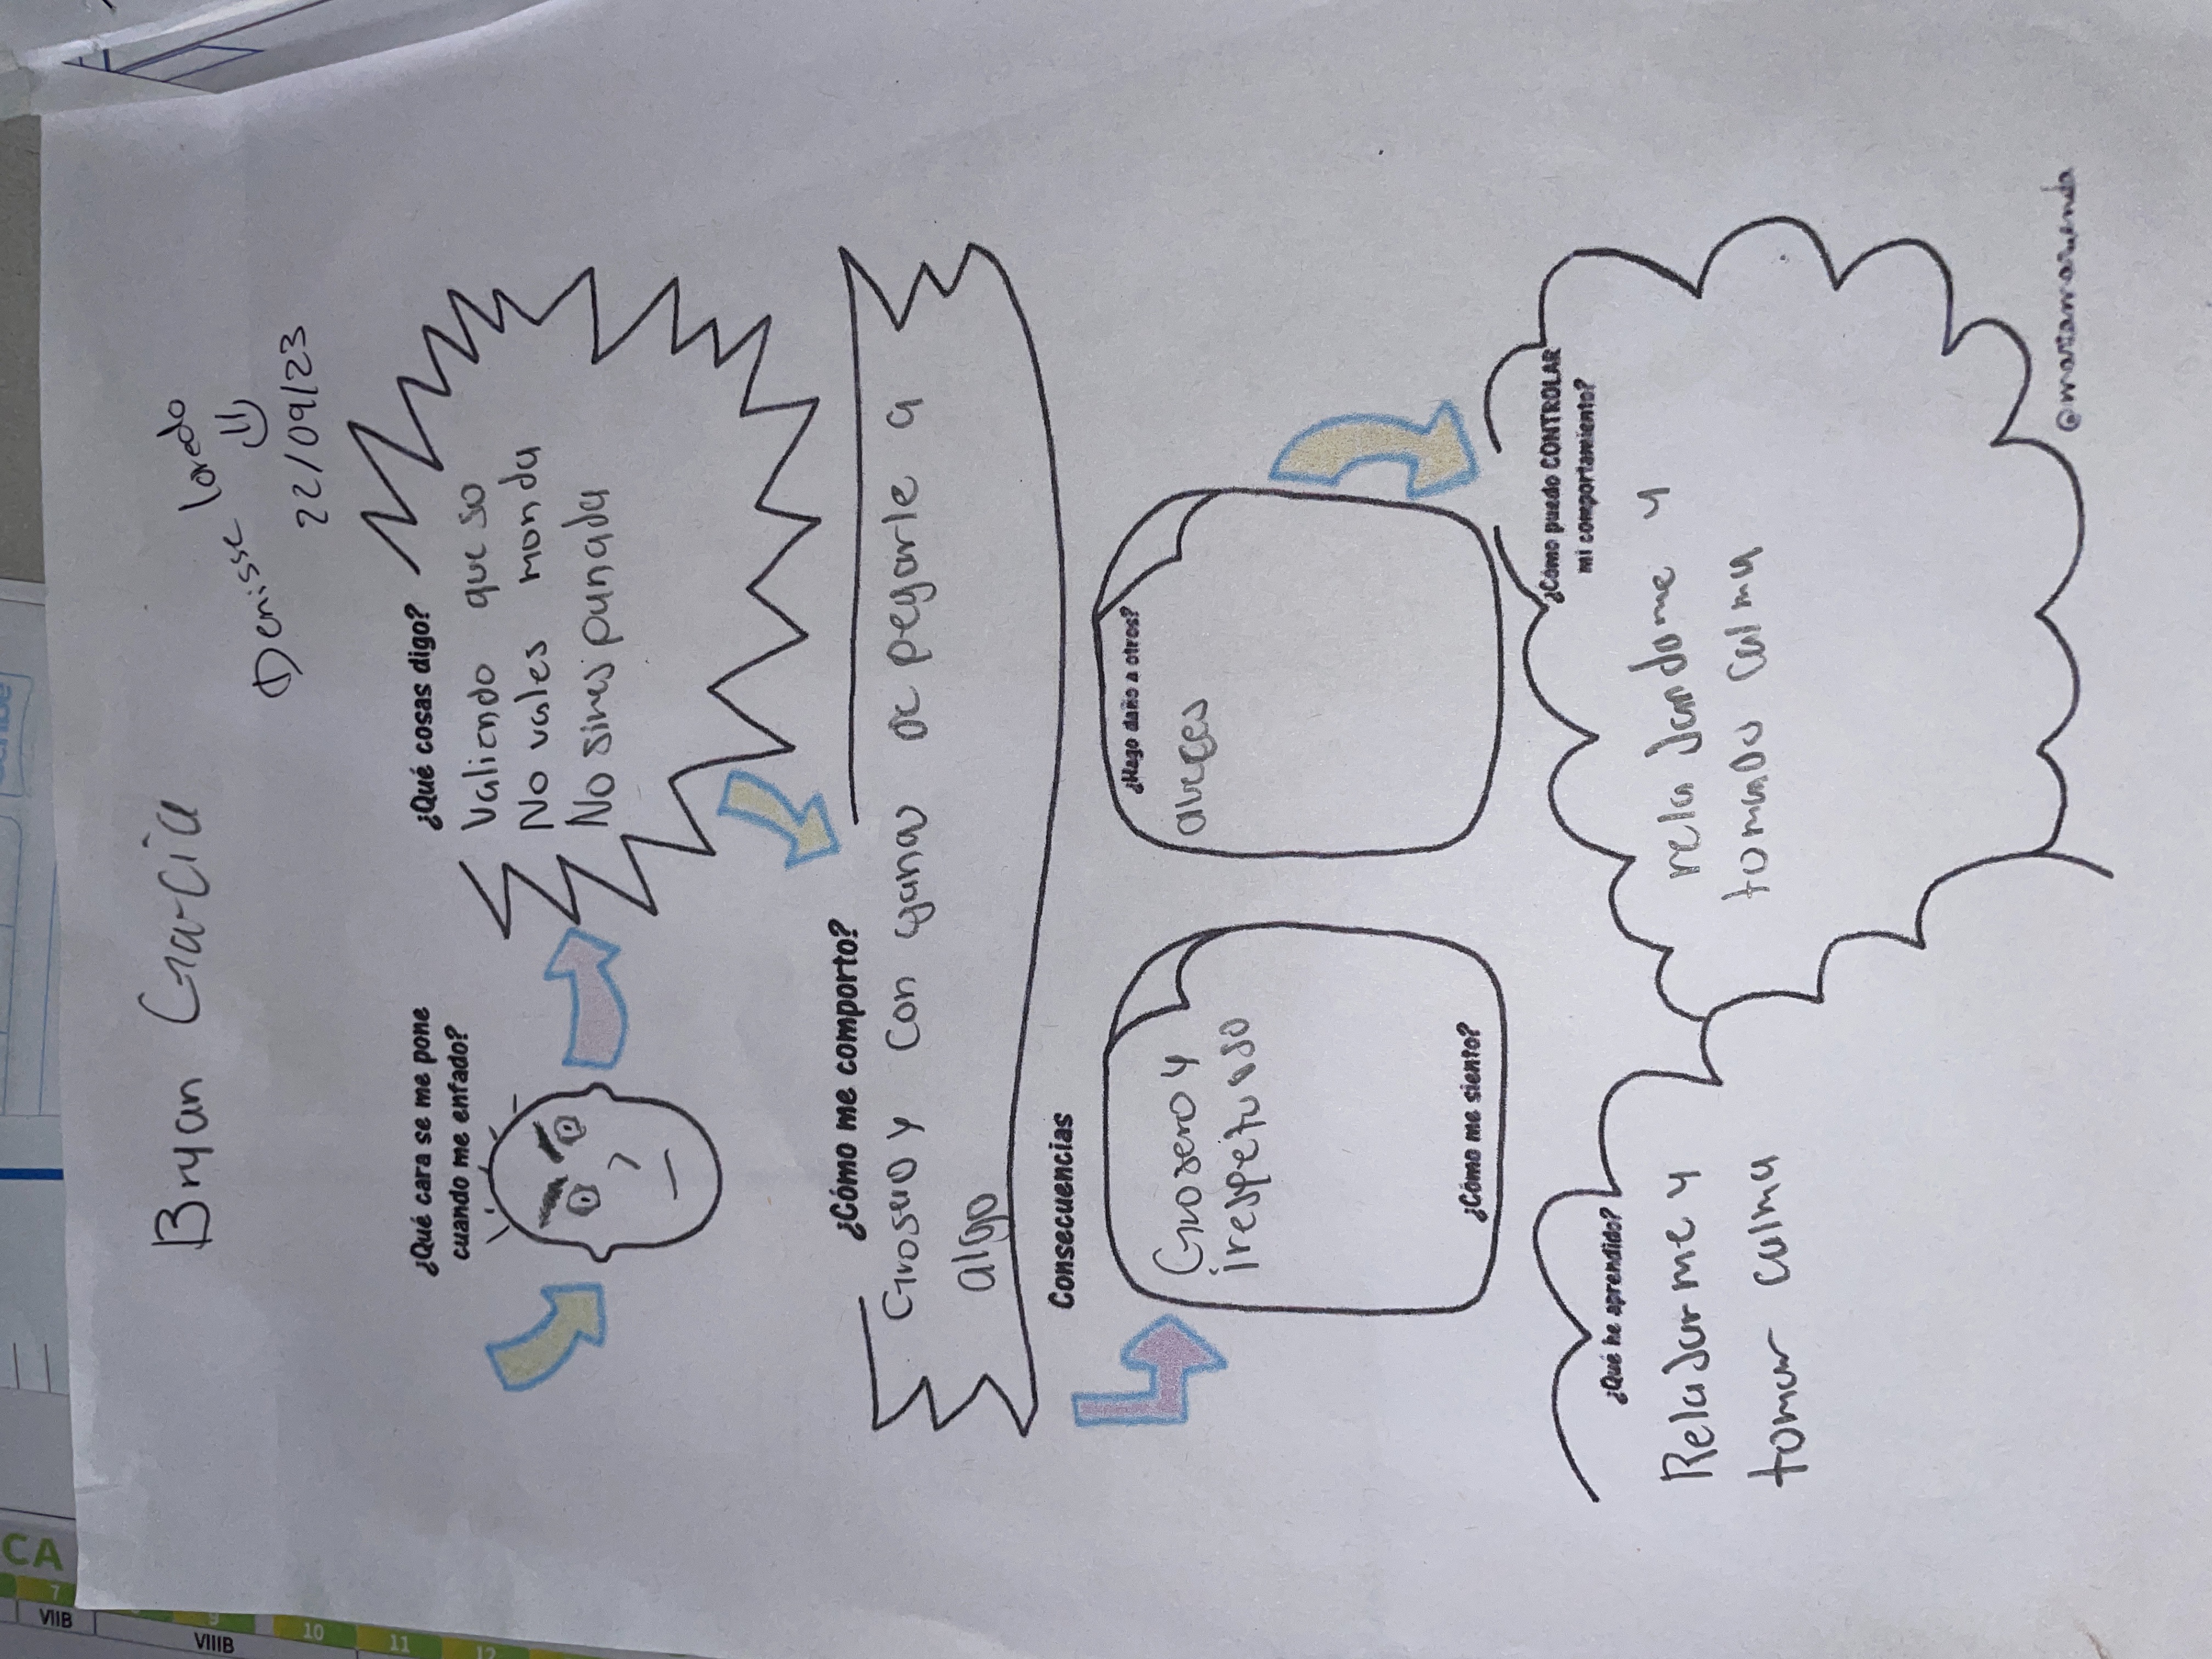 Bryan Garcia
Denisse loredo
22/09/23
¿Qué cara se me pone
cuando me enfado?
¿Qué cosas digo?
Valiendo queso
No vales monda
No sirves para nada
¿Cómo me comporto?
Grosero y Con ganas de pegarle a
algo
Consecuencias
Grosero y
irespetuoso
¿Cómo me siento?
¿Hago daño a otros?
aveces
¿Cómo puedo CONTROLAR
mi comportamiento?
relajandome y
tomando calma
¿Qué he aprendido?
Relajarme y
tomar calma
@martamarienda
CA
7
VIIB
9
VIIIB
10
11
12